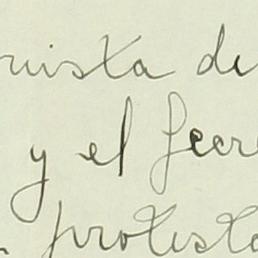 ruista de
y el Secre
protesta